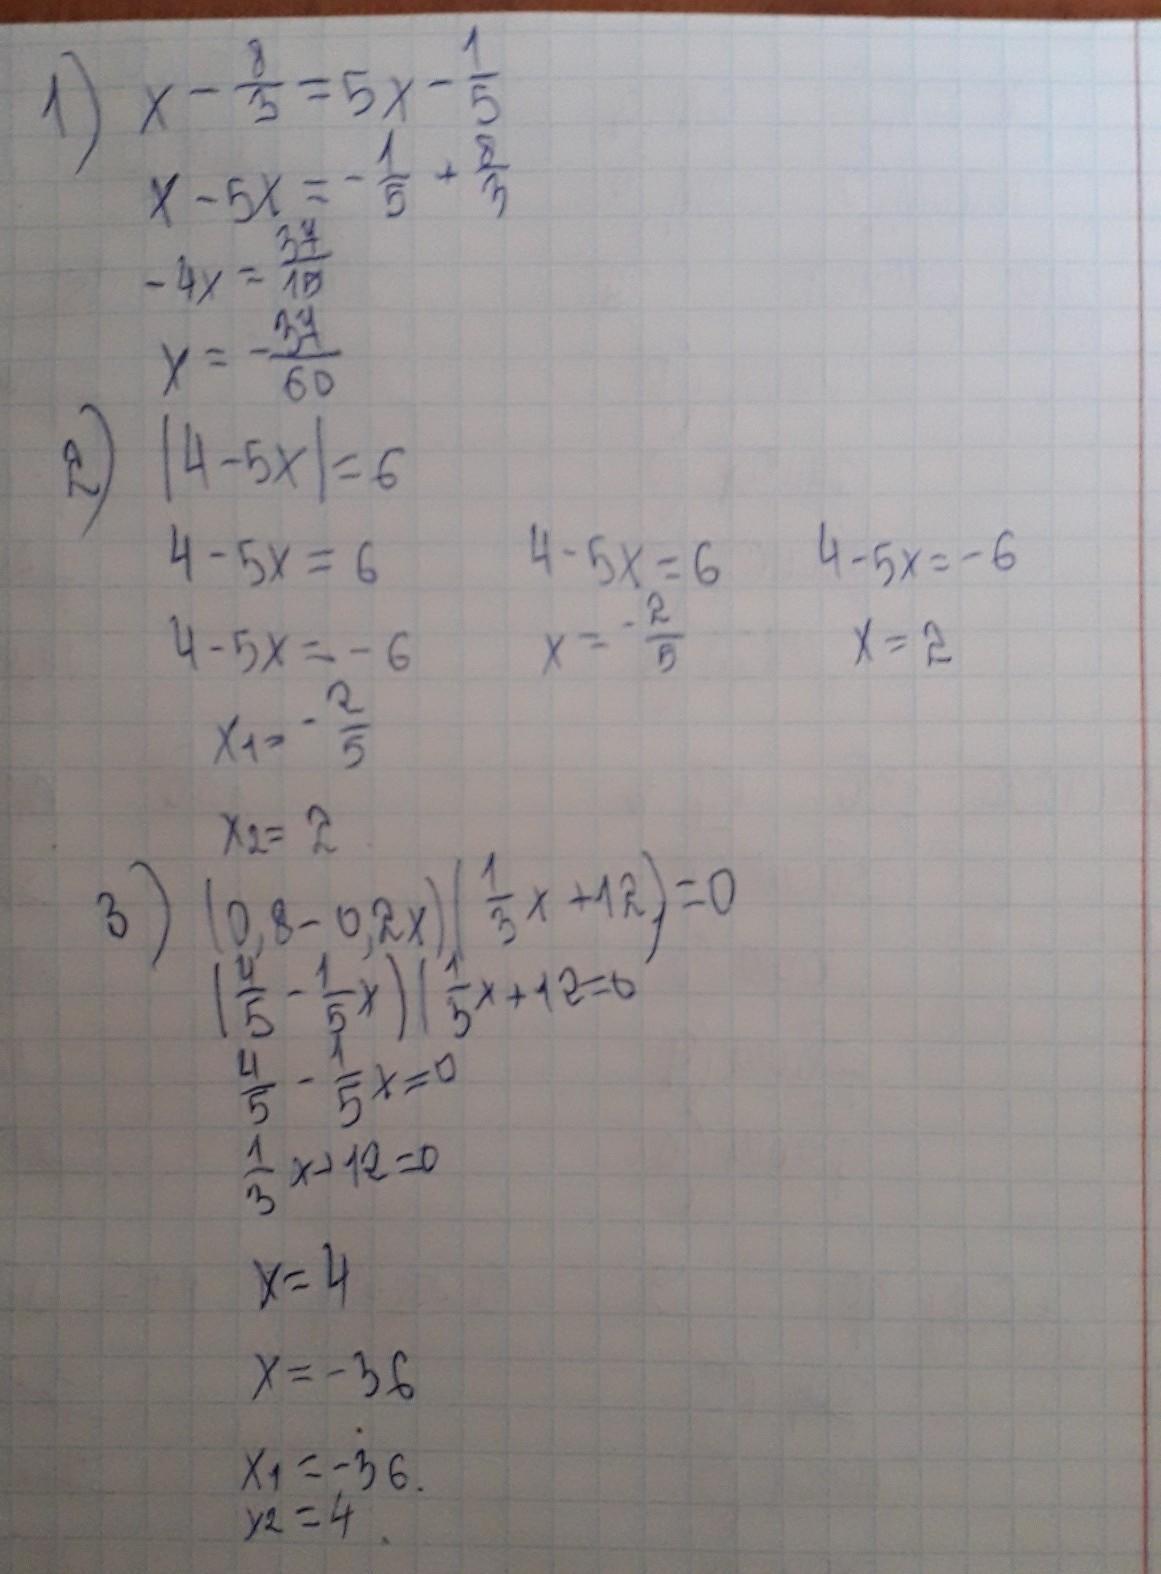 1) x - 8/3 = 5x - 1/5
x - 5x = - 1/5 + 8/3
-4x = 37/15
x = - 37/60
2) |4-5x| = 6
4 - 5x = 6 4 - 5x = 6 4-5x = -6
4 - 5x = - 6 x = - 2/5 x = 2
x1 = - 2/5
x2 = 2
3) (0,8 - 0,2x)(1/3 x + 12) = 0
(4/5 - 1/5 x)(1/3 x + 12 = 0
4/5 - 1/5 x = 0
1/3 x + 12 = 0
x = 4
x = -36
x1 = -36.
x2 = 4.